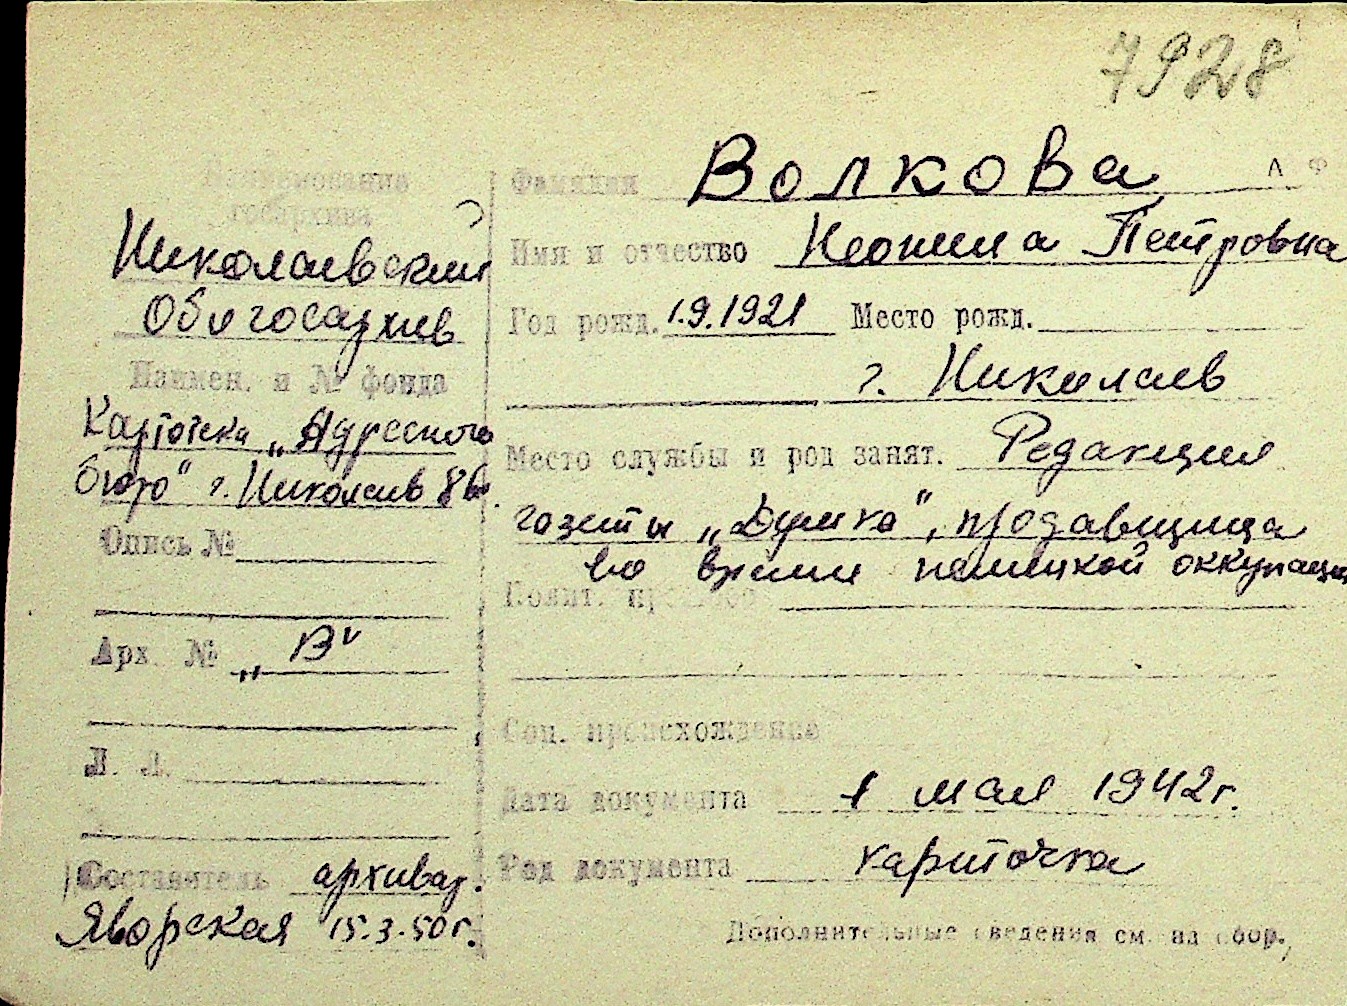 7928
Волкова
А Ф
Наименование
госархива
Фамилия
Николаевский
Имя и отчество Неонила Петровна
Облгосархив
Год рожд. 1.9.1921 Место рожд.
г. Николаев
Наимен. и № фонда
Картотека „Адресного
бюро" г. Николаев
Место службы и род занят. Редакция
газеты „Думка", продавщица
во время немецкой оккупации
Опись №
Полит. прошлое
Арх. № „В"
Соц. происхождение
Л. Л.
Дата документа 1 мая 1942г.
Род документа карточка
Составитель архивар.
Яворская 15.3.50г.
Дополнительные сведения см. на обор.